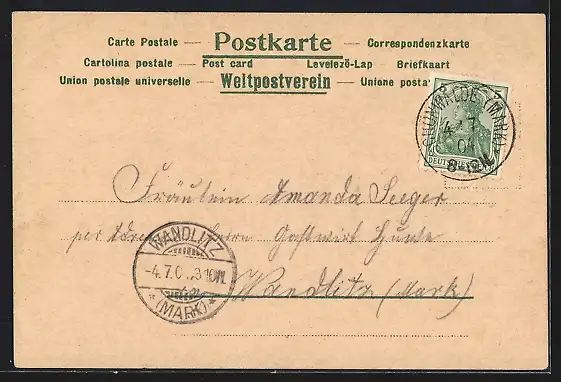 Carte Postale — Postkarte — Correspondenzkarte
Cartolina postale — Post card Levelező-Lap — Briefkaart
Union postale universelle — Weltpostverein — Unione posta
SCHÖNWALDE (MARK)
4.7.04
8-12V.
DEUTSCHES
Fräulein Amanda Seeger
per Adr. Herrn Gastwirt
Wandlitz (Mark)
WANDLITZ
-4.7.0 .8-10N.
* (MARK) *